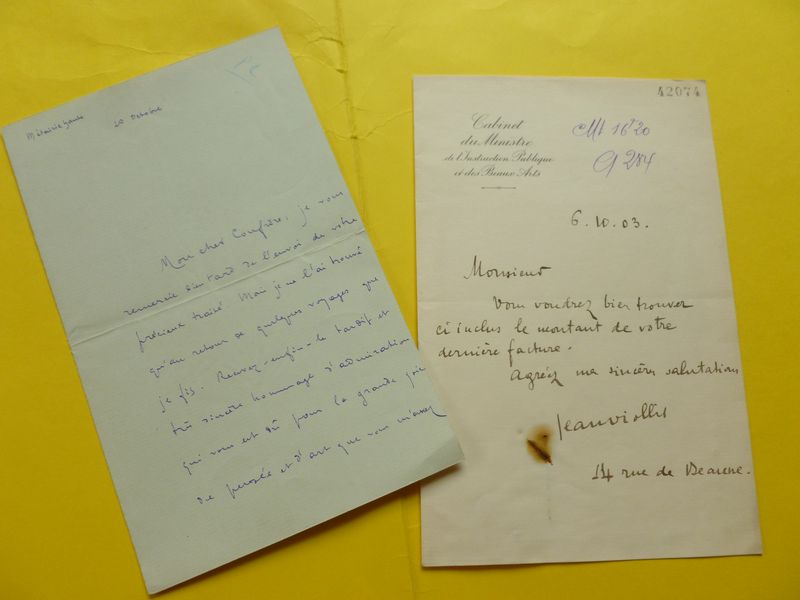 20 Octobre
Mon cher Confrère, je vous
remercie bien tard de l'envoi de votre
précieux traité. Mais je ne l'ai trouvé
qu'au retour de quelques voyages que
je fis. Recevez-enfin-le tardif et
très sincère hommage d'admiration
qui vous est dû pour la grande joie
de pensée et d'art que vous m'avez
42074
Cabinet
du Ministre
de l'Instruction Publique
et des Beaux Arts
Mt 16f20
G 284
6.10.03.
Monsieur
Vous voudrez bien trouver
ci inclus le montant de votre
dernière facture.
Agréez ma sincères salutations
Jean Viollis
14 rue de Beaune.